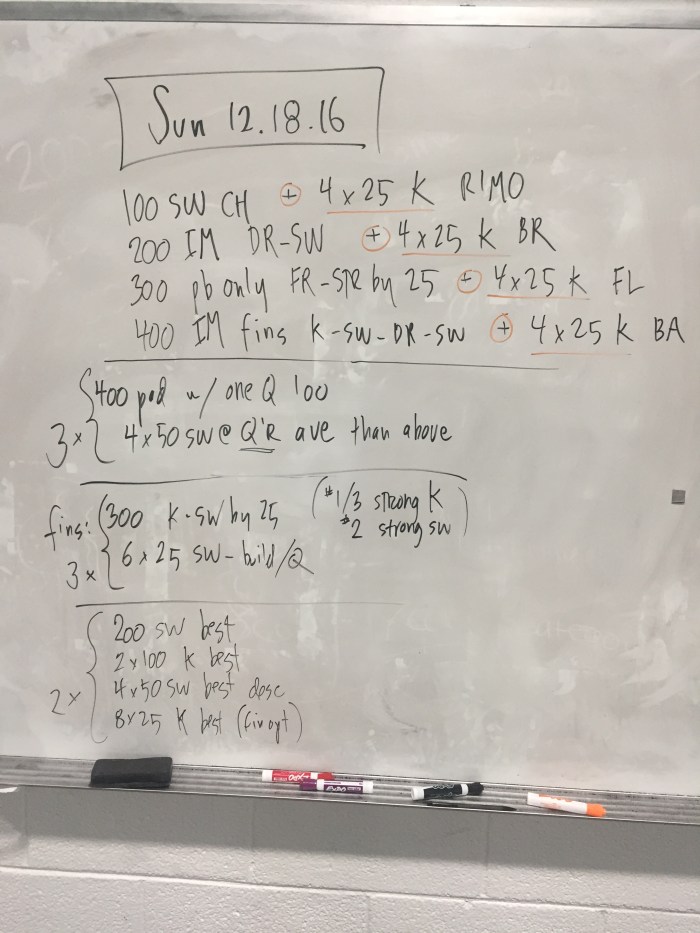 Sun 12.18.16
100 SW CH + 4 x 25 K RIMO
200 IM DR-SW + 4 x 25 K BR
300 pb only FR-STR by 25 + 4 x 25 K FL
400 IM fins K-SW-DR-SW + 4 x 25 K BA
400 pad w/ one Q 100
3 x 4 x 50 SW @ Q'R ave than above
fins: 300 K-SW by 25 (#1/3 strong K
#2 strong SW)
3 x 6 x 25 SW-build/Q
200 SW best
2 x 100 K best
2 x 4 x 50 SW best desc
8 x 25 K best
EXPO